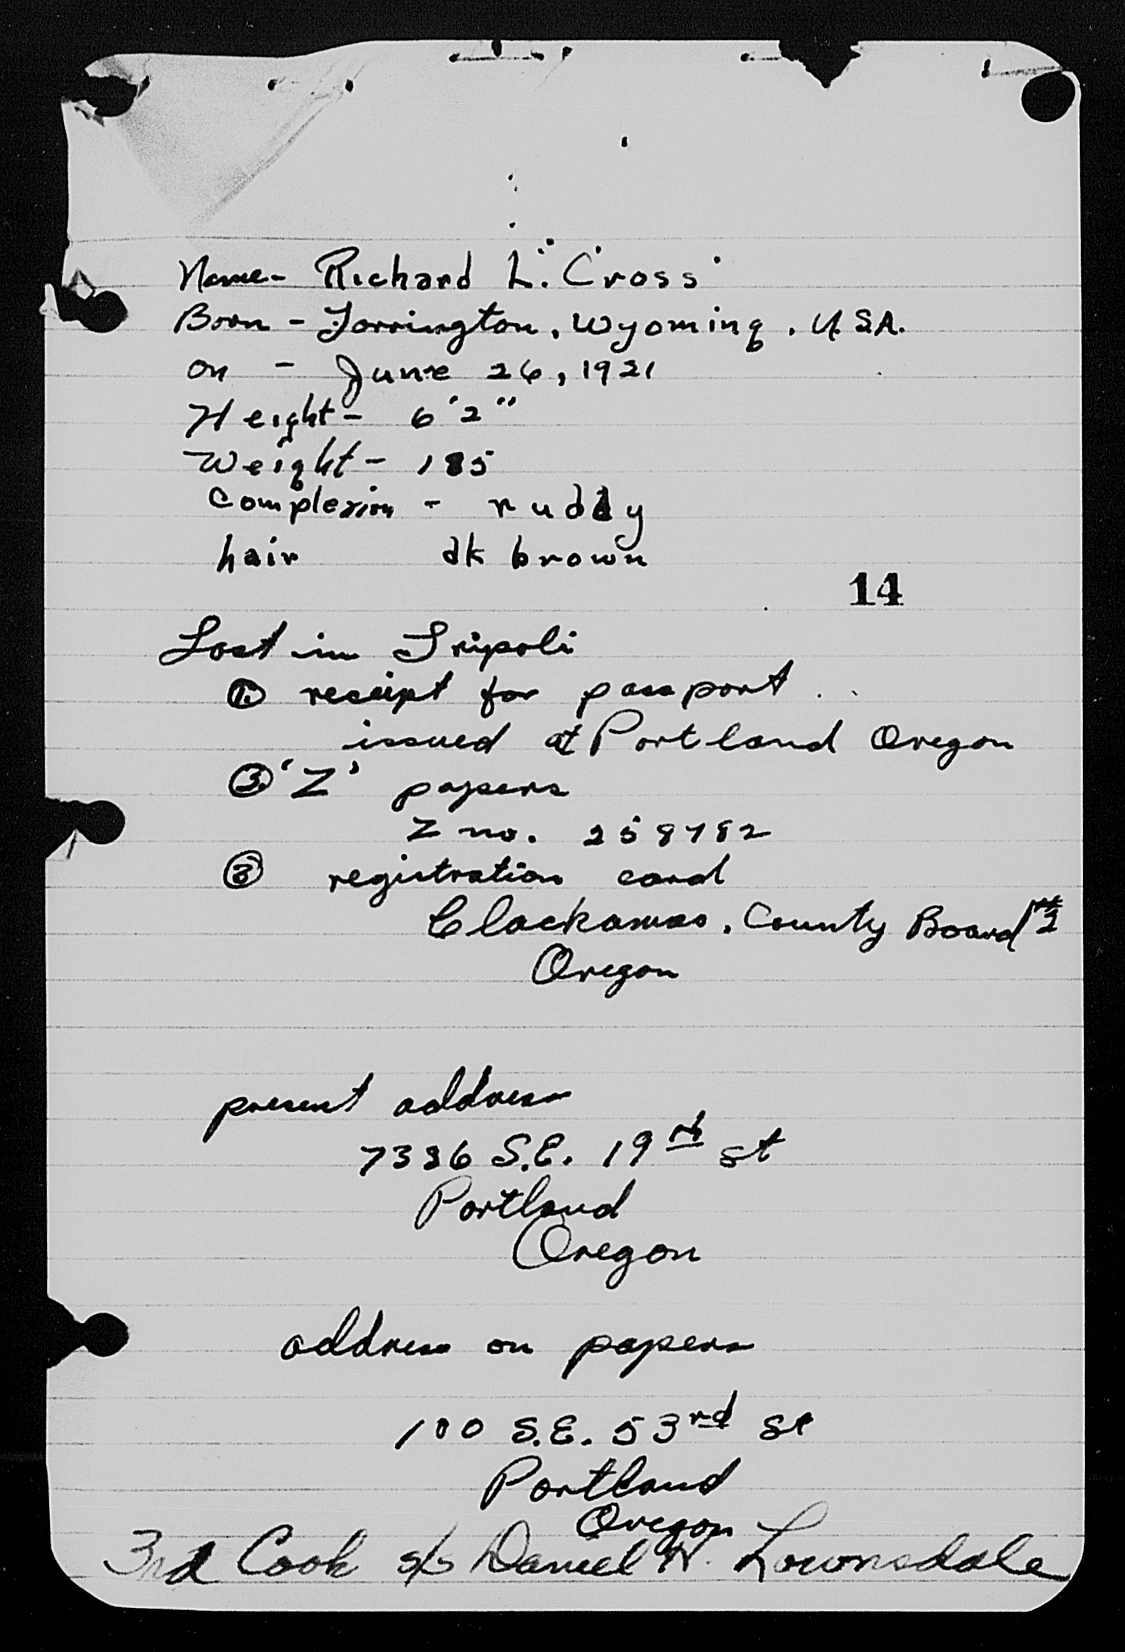 Name- Richard L. Cross
Born - Torrington, Wyoming, U.S.A.
on - June 26, 1921
Height- 6'2"
Weight- 185
Complexion - ruddy
hair dk brown
14
Lost in Tripoli
① receipt for passport
issued at Portland Oregon
③ 'Z' papers
Z no. 258782
② registration card
Clackamas, County Board #2
Oregon
present address
7336 S.E. 19th st
Portland
Oregon
address on papers
100 S.E. 53rd St
Portland
Oregon
3rd Cook s/s Daniel H. Lownsdale